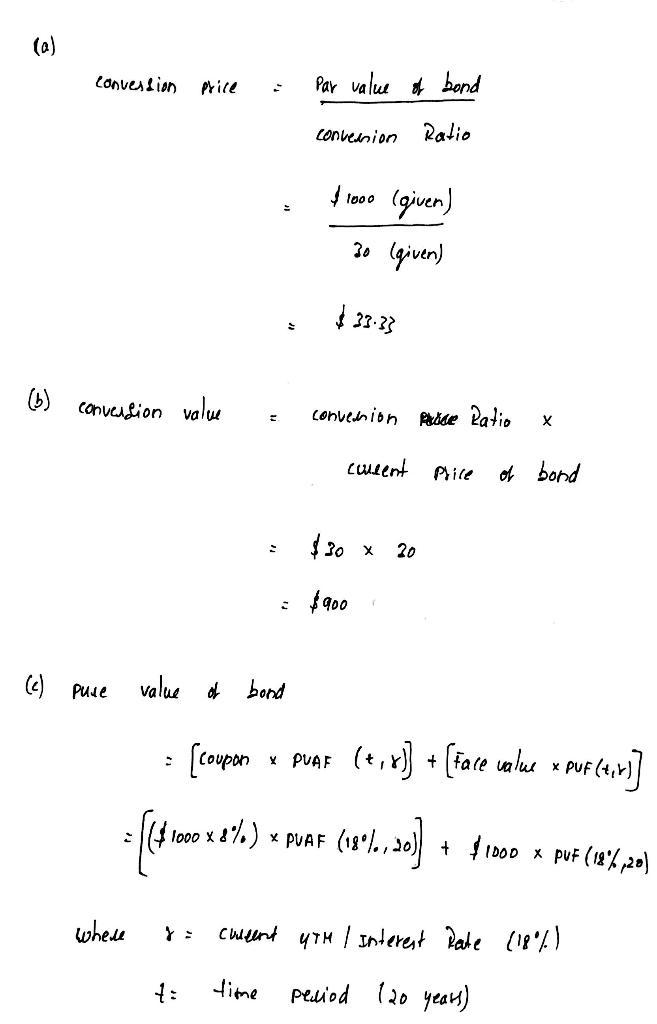 (a)
conversion price = Par value of bond
conversion Ratio
= $ 1000 (given)
30 (given)
= $ 33.33
(b) conversion value = conversion Ratio x
current price of bond
= $ 30 x 30
= $ 900
(c) pure value of bond
= [coupon x PVAF (t, r)] + [Face value x PVF (t, r)]
= [($ 1000 x 8%) x PVAF (18%, 20)] + $ 1000 x PVF (18%, 20)
where r = current YTM / Interest Rate (18%)
t = time period (20 years)